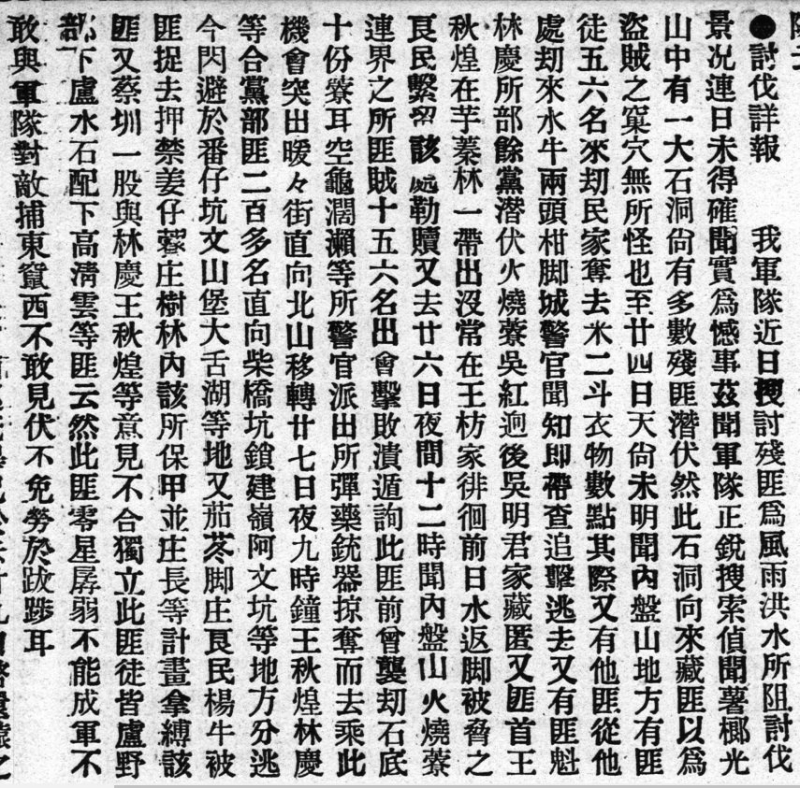 ●討伐詳報　我軍隊近日搜討殘匪為風雨洪水所阻討伐
景况連日未得確聞實為憾事茲聞軍隊正銳搜索偵聞薯榔光
山中有一大石洞尙有多數殘匪潛伏然此石洞向來藏匪以為
盜賊之窠穴無所怪也至廿四日天尙未明聞內盤山地方有匪
徒五六名來刧民家奪去米二斗衣物數點其際又有他匪從他
處刧來水牛兩頭柑脚城警官聞知即帶查追擊逃去又有匪魁
林慶所部餘黨潛伏火燒藔吳紅逈後吳明君家藏匿又匪首王
秋煌在芋蓁林一帶出沒常在王枋家徘徊前日水返脚被脅之
良民繫留該處勒贖又去廿六日夜間十二時聞內盤山火燒藔
連界之所匪賊十五六名出會擊敗潰遁詢此匪前曾襲刧石底
十份藔耳空龜濶瀨等所警官派出所彈藥銃器掠奪而去乘此
機會突出暖々街直向北山移轉廿七日夜九時鐘王秋煌林慶
等合黨部匪二百多名直向柴橋坑鎖建嶺阿文坑等地方分逃
今閃避於番仔坑文山堡大舌湖等地又茄苳脚庄良民楊牛被
匪捉去押禁姜仔藔庄樹林內該所保甲並庄長等計畫拿縛該
匪又蔡圳一股與林慶王秋煌等意見不合獨立此匪徒皆盧野
部下盧水石配下高淸雲等匪云然此匪零星孱弱不能成軍不
敢與軍隊對敵捕東竄西不敢見伏不免勞於跋踄耳